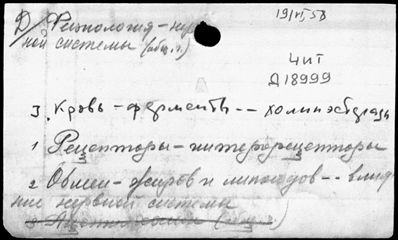 Д/ Физиология - нерв
19/VI 58
ной системы (общ. г)
ЧИТ
Д18999
3. Кровь - ферменты -- холинэстераза
1 Рецепторы - интерорецепторы
2 Обмен - жиров и липоидов -- влия
ние нервной системы